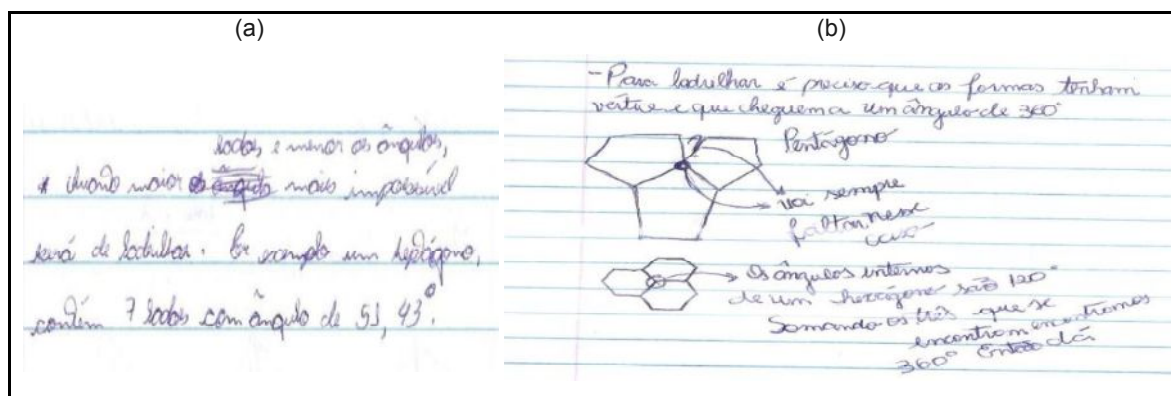 (a)
lados, e menor os ângulos,
* Quando maior mais impossível
será de ladrilhar. Por exemplo um heptágono,
contém 7 lados com ângulo de 51,43°.
(b)
- Para ladrilhar é preciso que as formas tenham
vértice e que cheguem a um ângulo de 360°
Pentágono
Vai sempre
faltar nesse
caso
Os ângulos internos
de um hexágono são 120°
Somando os três que se
encontram encontramos
360° então dá